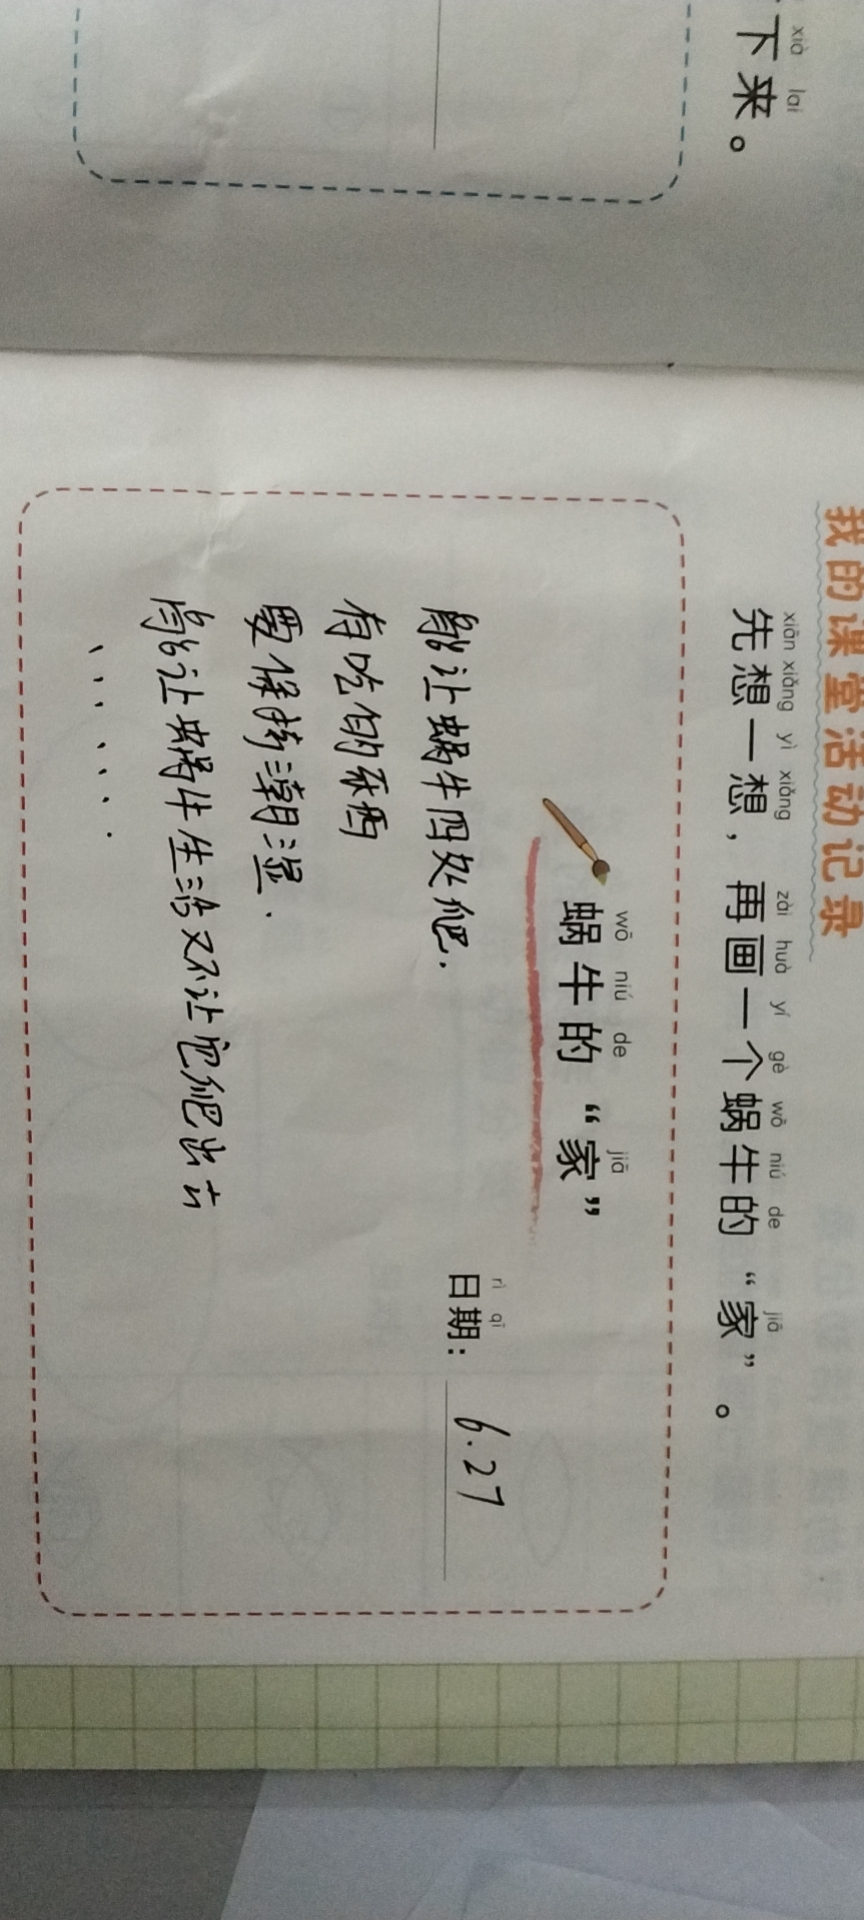 xià lai
下来。
我的课堂活动记录
xiān xiǎng yì xiǎng zài huà yí gè wō niú de jiā
先想一想，再画一个蜗牛的“家”。
wō niú de jiā
蜗牛的“家”
rì qī
日期：6.27
能让蜗牛四处爬.
有吃的东西
要保持潮湿.
能让蜗牛生活又不让它爬出去
......